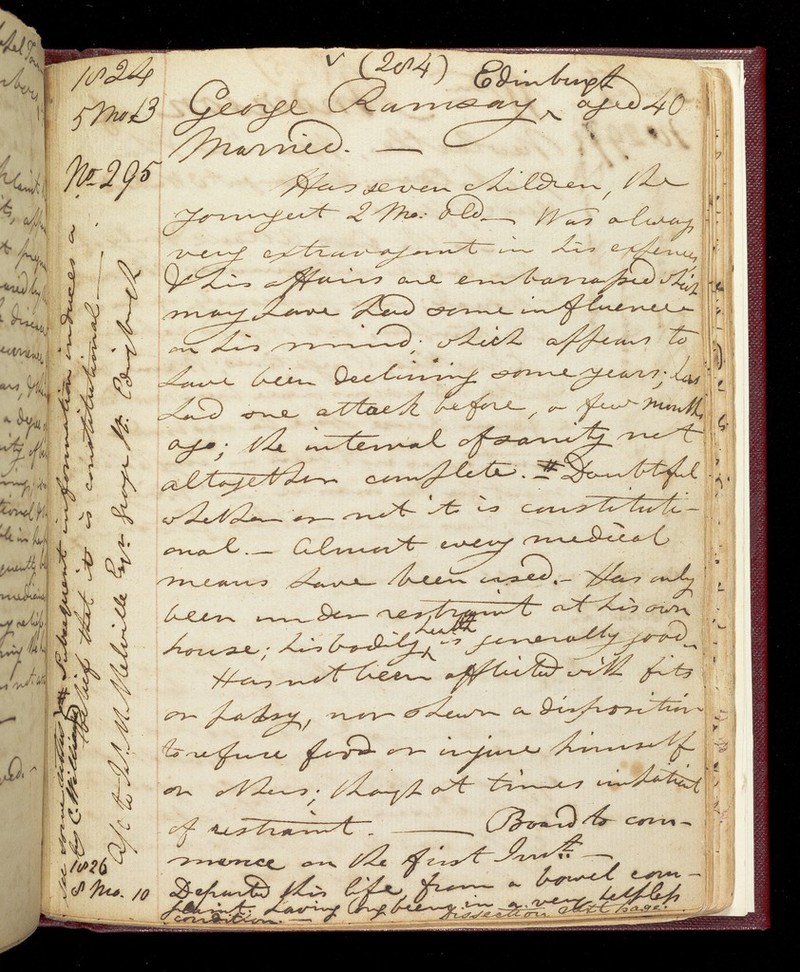 1824
5 Mo: 13
No. 295
(284)
Edinburgh
George Ramsay, aged 40
Married. —
Has seven children, the
youngest 2 Mo: old — Was always
very extravagant in his expenses,
& his affairs are embarrassed which
may have had some influence
on his mind; which appears to
have been declining some years; has
had one attack before, a few months
ago; the interval of sanity not
altogether complete. # Doubtful
whether or not it is constituti-
onal. — Almost every medical
means have been used. — Has only
been under restraint at his own
house; his bodily health is generally good.
Has not been afflicted with fits
or palsy, nor shewn a disposition
to refuse food or injure himself
or others; though at times impatient
of restraint. — Board to com-
mence on the first Inst. —
1826
8 Mo. 10
Departed this life, from a bowel com-
plaint, having long been in a very helpless
condition. —
Dissection case page.
# Subsequent information induces a
belief that it is constitutional —
by C. Williams
a/c to Melville Esqr. George St. Edinburgh